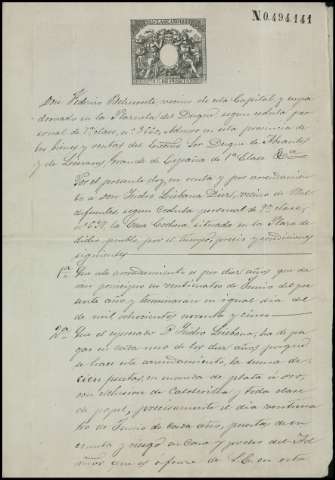 N 0.494.141
Don Federico Belmonte, vecino de esta Capital y empa-
dronado en la Plazuela del Duque, segun cedula per-
sonal de 7ª clase, nº 3722, Admor en esta provincia de
los bienes y rentas del Excmo Sor Duque de Abrantes
y de Linares, Grande de España de 1ª Clase &ª
Por el presente doy, en renta y por arrendamien-
to a Don Pedro Liebana Diaz, vecino de
segun cedula personal de 9ª clase,
la Casa situada en la Plaza de
dicho pueblo, por el tiempo, precio y condiciones
siguientes
1ª Que este arrendamiento es por diez años que da-
ran principio en veinticuatro de Junio del pre-
sente año y terminaran en igual dia del
de mil ochocientos noventa y cinco
2ª Que el expresado D. Pedro Liebana, ha de pa-
gar en cada uno de los diez años porque
se hace este arrendamiento, la suma de
cien pesetas, en moneda de plata ú oro,
con esclusion de calderilla y toda clase
de papel, precisamente el dia veinticua-
tro de Junio de cada año, puestas de su
cuenta y riesgo en casa y poder del Ad-
mor que es ó fuere de S.E. en esta